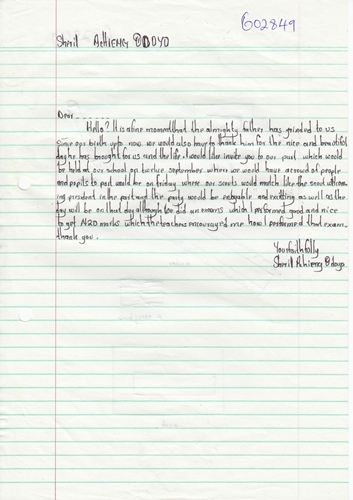 602849
Sheril Achieng Odoyo
Dear
Hello? It is a fine moment that the almighty father has guided to us
since birth upto now we would also have to thank him for the nice and beautiful
day he has brought for us and the life. I would like invite you to our part which would
be held at our school on twelve september where we would have a crowd of people
and pupils to part would be on friday where our scouts would match like the scout
ing president in the part and the party would be enjoyable and exciting as well as the
day will be on that day although we did an exams which I performed good and nice
to get 420 marks which the teachers encouraged me how I performed that exam.
thank you.
Your faithfully
Sheril Achieng Odoyo